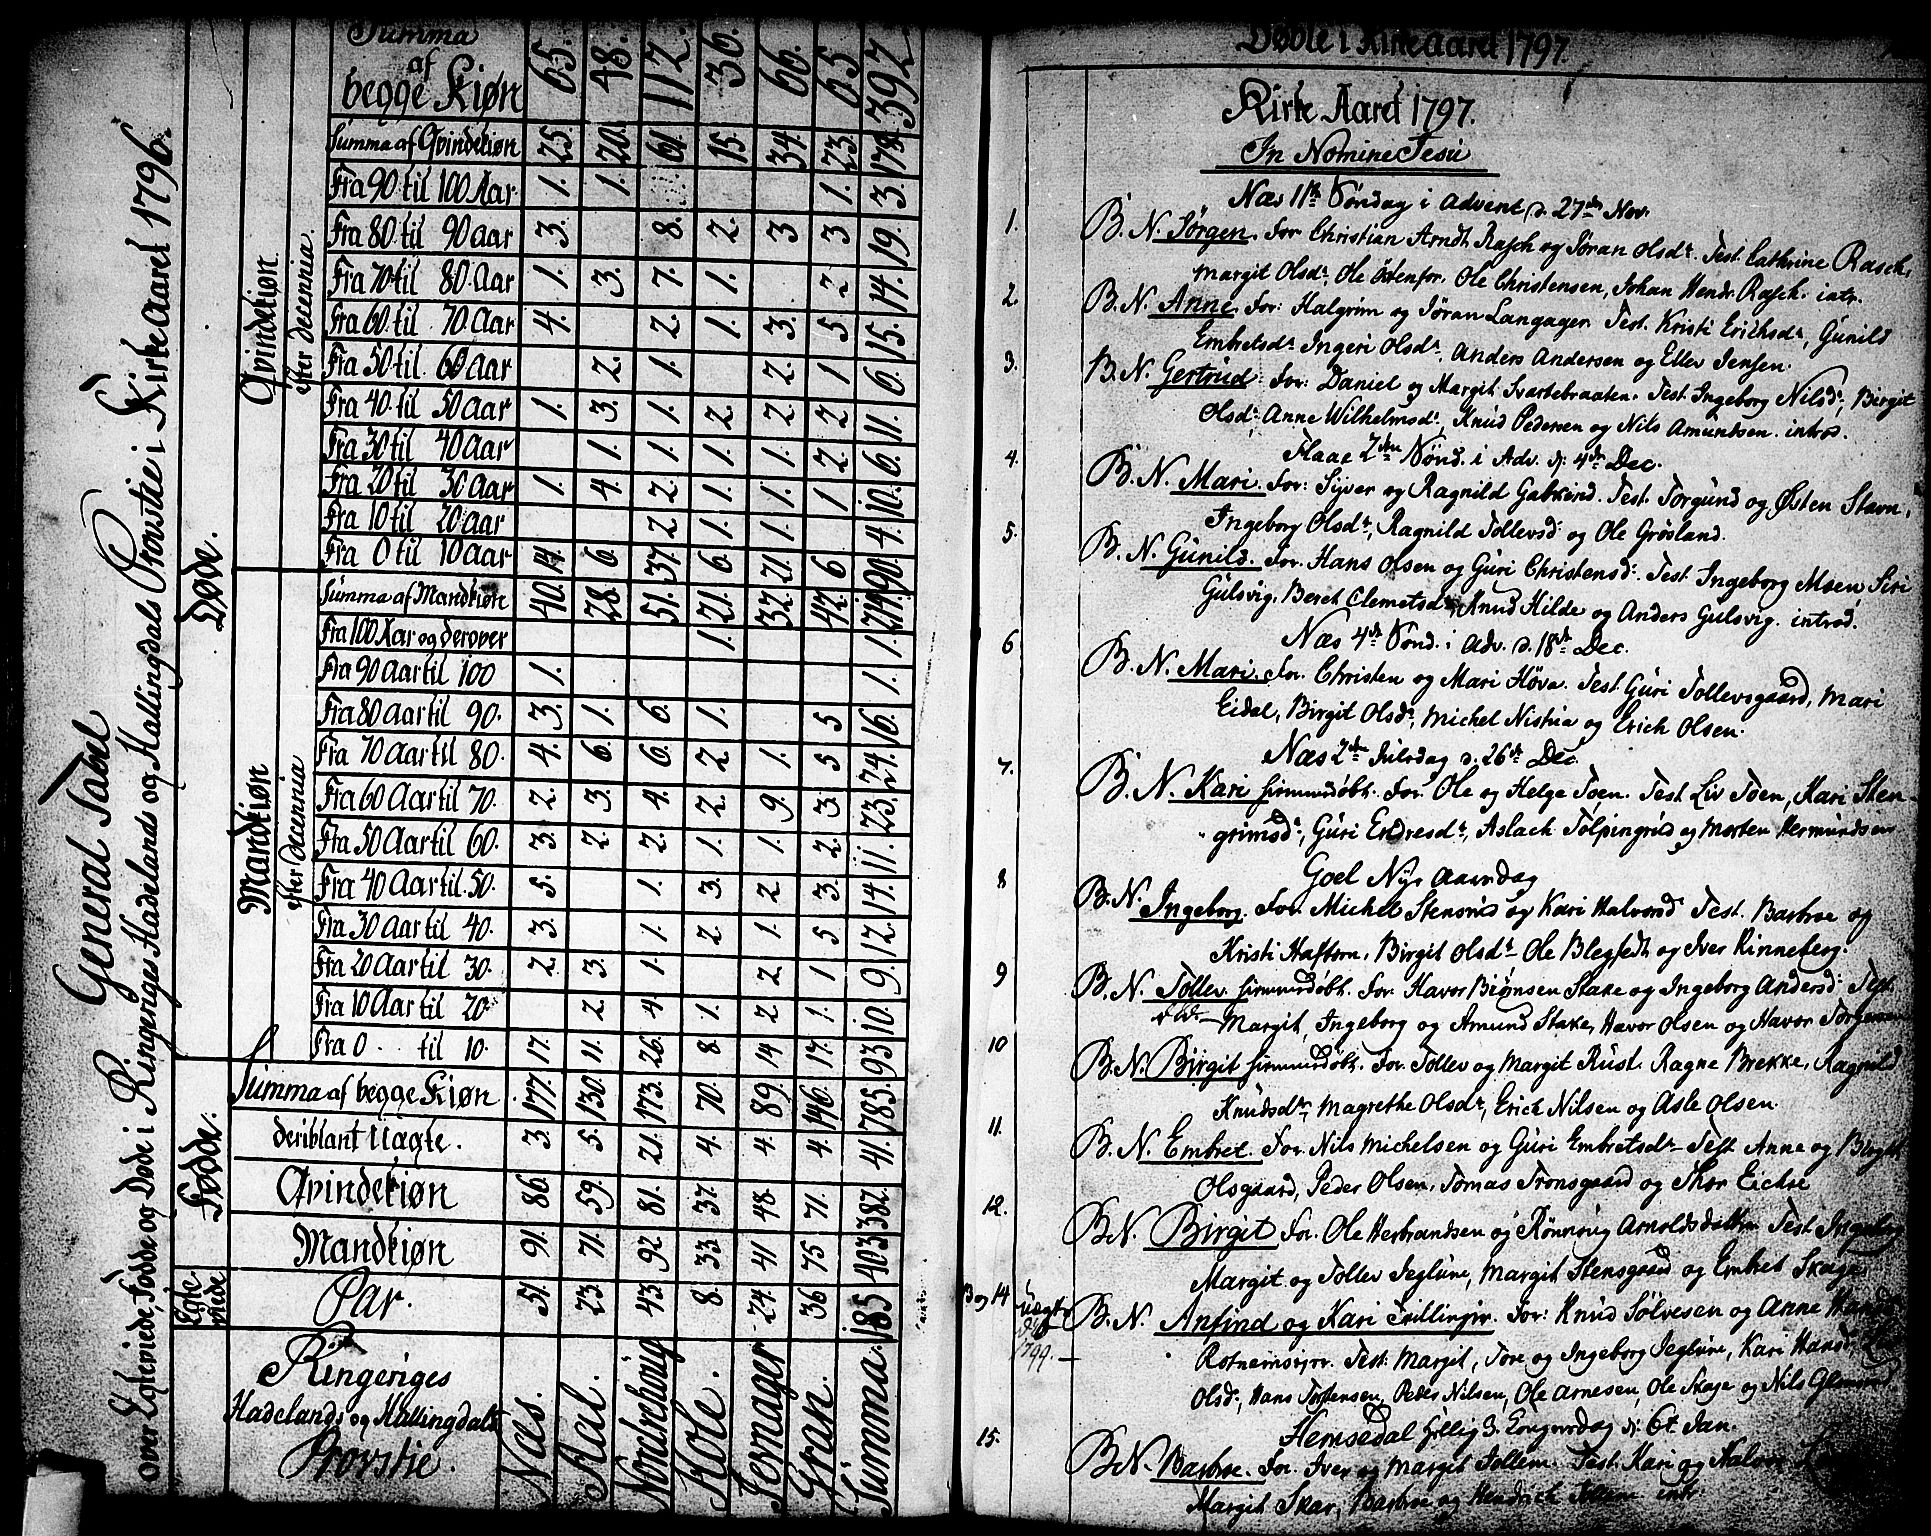 General Tabel
over Egteviede, Fødde og Døde i Ringeriges Hadelands og Hallingdals Provstie i Kirke Aaret 1796.
Ringeriges Hadelands og Hallingdals Provstie. | Næs. | Aal. | Norderhoug | Hole. | Jevnager | Gran. | Summa.
Egteviede Par. | 51. | 23. | 43. | 8. | 24. | 36 | 185
Fødde. Mandkiøn | 91. | 71. | 92 | 33. | 41 | 75 | 403
Qvindekiøn | 86. | 59. | 81. | 37. | 48. | 71. | 382.
deriblant Uægte. | 3. | 5. | 21. | 4. | 4. | 4. | 41.
Summa af begge Kiøn | 177. | 130. | 173. | 70. | 89. | 146. | 785.
Døde.
Mandkiøn efter decennia
Fra 0 til 10. | 17. | 11. | 26. | 8. | 14 | 17. | 93
Fra 10 Aar til 20. | | 2. | 4. | 1. | 2 | 1. | 10.
Fra 20 Aar til 30. | 2. | 3. | 1. | | 2 | 1 | 9.
Fra 30 Aar til 40. | 3. | | 1. | 2. | 1. | 5 | 12.
Fra 40 Aar til 50. | 5. | | 1. | 3. | 2 | 3. | 14.
Fra 50 Aar til 60. | 3. | 2. | 2. | 1. | 1. | 2. | 11.
Fra 60 Aar til 70. | 2. | 3. | 4. | 2. | 9. | 3. | 23.
Fra 70 Aar til 80. | 4. | 6. | 6. | 2 | 1. | 5 | 24.
Fra 80 Aar til 90. | 3. | 1. | 6. | 1. | | 5 | 16.
Fra 90 Aar til 100 | 1. | | | | | | 1.
Fra 100 Aar og derover | | | | 1. | | | 1.
Summa af Mandkiøn | 40. | 28. | 51. | 21. | 32. | 42. | 214.
Qvindekiøn efter decennia.
Fra 0 til 10 Aar | 14. | 6. | 37. | 6. | 21. | 6 | 90.
Fra 10 til 20 Aar | | | 2 | 1. | 1. | | 4.
Fra 20 til 30 Aar | 1. | 4. | 2. | 1. | 1. | 1 | 10.
Fra 30 til 40 Aar | | 1. | 1. | 1. | 1. | 2. | 6.
Fra 40 til 50 Aar | 1. | 3. | 1. | 2. | 2 | 2 | 11.
Fra 50 til 60 Aar | | 2. | 1. | | 2. | 1 | 6
Fra 60 til 70 Aar | 4. | | 2. | 1. | 3. | 5 | 15.
Fra 70 til 80 Aar | 1. | 3. | 7. | 1. | | 2 | 14.
Fra 80 til 90 Aar | 3. | | 8. | 2. | 3 | 3 | 19.
Fra 90 til 100 Aar | 1. | 1. | | | | 1. | 3.
Summa af Qvindekiøn | 25. | 20. | 61. | 15. | 34. | 23. | 178.
Summa af begge Kiøn | 65. | 48. | 112. | 36. | 66. | 65. | 392
Døbte i Kirke Aaret 1797.
Kirke Aaret 1797.
In Nomine Jesu
Næs 1ste Søndag i Advent d. 27de Nov.
1. B. N. Jørgen. For Christian Arndt Rasch og Jøran Olsd. Test. Cathrine Rasch,
Margit Olsd., Ole Østenfor. Ole Christensen, Johan Hendr. Rasch. intr.
2. B. N. Anne. For: Halgrim og Jøran Langager. Test. Kristi Erichsd., Gunild
Embretsd. Ingeri Olsd., Anders Andersen og Ellev Jensen.
3. B. N. Gertrud. For: Daniel og Margit Svartebraaten. Test Ingeborg Nilsd., Birgit
Olsd. Anne Wilhelmsd., Knud Pedersen og Nils Amundsen. introd.
Flaae 2den Sønd. i Adv. d. 4de Dec.
4. B. N. Mari. For: Syver og Ragnild Gabrud. Test. Torgund og Østen Stavn,
Ingeborg Olsd., Ragnild Tollevsd. og Ole Grøsland.
5. B. N. Gunild. For. Hans Olsen og Guri Christensd. Test. Ingeborg Moen Siri
Gulsvig, Beret Clemetsd., Knud Hilde og Anders Gulsvig. introd.
Næs 4de Sønd. i Adv. d. 18de Dec.
6 B. N. Mari. For. Christen og Mari Høva. Test. Guri Tollevsgaard, Mari
Eidal, Birgit Olsd., Michel Nistua og Erich Olsen.
Næs 2den Juledag d. 26de Dec.
7. B. N. Kari hiemmedøbt. For. Ole og Helge Toen. Test Liv Toen, Kari Sten-
grimsd., Guri Endresd., Aslach Tolpingrud og Morten Hermundsen
Goel Nyt Aarsdag
8 B. N. Ingeborg. For. Michel Stensrud og Kari Halvorsd Test. Barbroe og
Kristi Haftorn, Birgit Olsd. Ole Blegsedt og Iver Rinneberg.
9 B. N. Tollev. hiemmedøbt. For. Havor Biørnsen Stake og Ingeborg Andersd. Test
Margit, Ingeborg og Amund Stake, Havor Olsen og Havor Torgersen
10 B. N. Birgit hiemmedøbt. For. Tollev og Margit Rust. Ragne Brekke, Ragnild
Knudsd., Magrethe Olsd., Erich Nilsen og Asle Olsen.
11. B. N. Embret. For. Nils Michelsen og Guri Embretsd. Test Anne og Birgit
Olsgaard, Peder Olsen, Tomas Tronsgaard og Thor Eichre
12. B.N. Birgit For. Ole Herbrandsen og Rønnoug Arnoldsdatter Test. Ingeborg
Margit og Tollev Jeglum, Margit Stensgaard og Embret Skage
13 og 14 uægte 1799. B. N. Anfind og Kari Trillinger. For: Knud Sølvesen og Anne Hansd.
Rotnemseyer. Test. Margit, Tore og Ingeborg Jeglum, Kari Hansd.,
Olsd. Hans Torstensen, Peder Nilsen, Ole Arnesen, Ole Skage og Nils Glemmed
Hemsedal hellig 3 Kongersdag d. 6t Jan.
15. B.N. Barbroe. For. Iver og Margit Tollem. Test. Kari og Halvor
Margit Skar, Barbroe og Hendrich Tolleme intr.